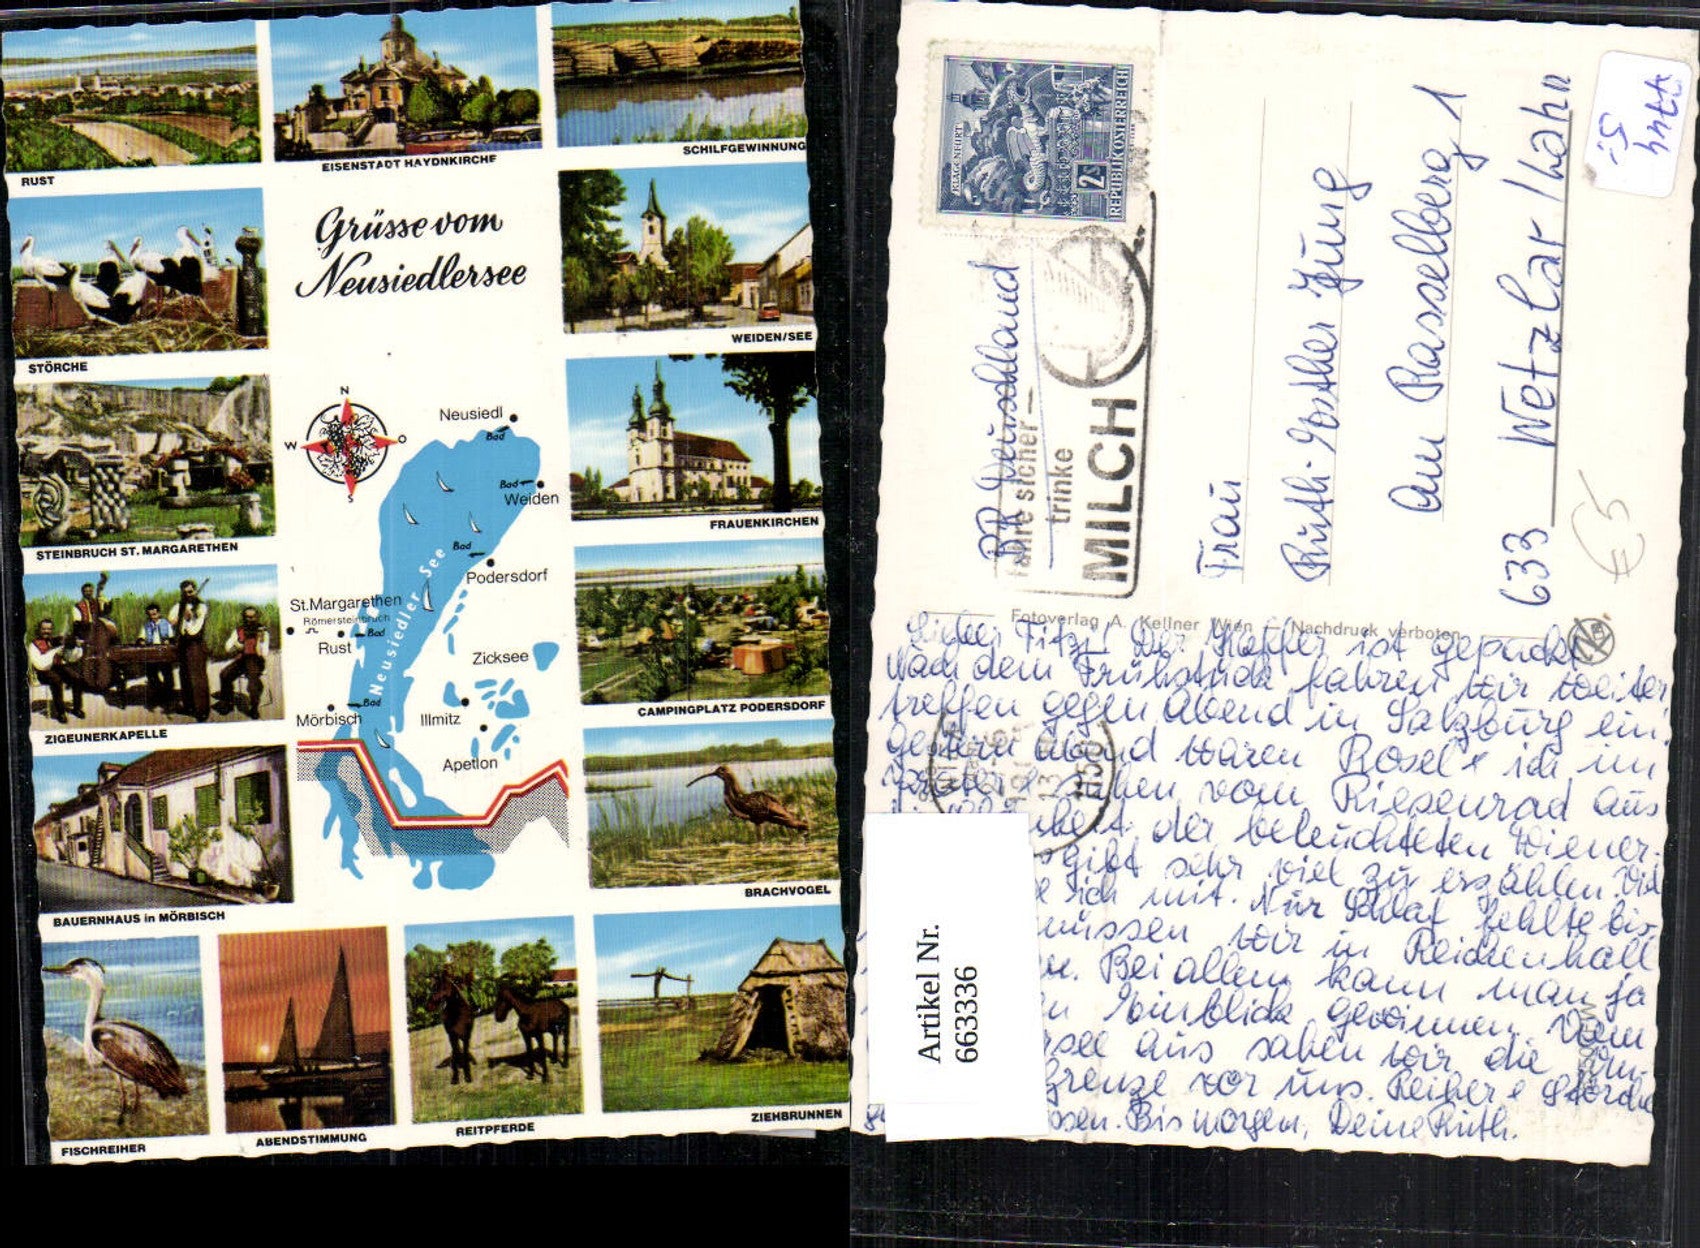 RUST
EISENSTADT HAYDNKIRCHE
SCHILFGEWINNUNG
Grüsse vom
Neusiedlersee
STÖRCHE
WEIDEN/SEE
STEINBRUCH ST. MARGARETHEN
FRAUENKIRCHEN
N
W
O
S
Neusiedl
Bad
Bad
Weiden
Bad
Podersdorf
St.Margarethen
Römersteinbruch
Bad
Rust
Neusiedler See
Zicksee
Mörbisch
Bad
Illmitz
Apetlon
ZIGEUNERKAPELLE
CAMPINGPLATZ PODERSDORF
BAUERNHAUS in MÖRBISCH
BRACHVOGEL
FISCHREIHER
ABENDSTIMMUNG
REITPFERDE
ZIEHBRUNNEN
KLAGENFURT
2S
REPUBLIK ÖSTERREICH
BR Deutschland
fahre sicher —
trinke
MILCH
Frau
Ruth-Esther Jung
Am Rasselberg 1
633 Wetzlar/Lahn
5.-
€5
Fotoverlag A. Kellner Wien — Nachdruck verboten
Lieber Fitz! Der Koffer ist gepackt
Nach dem Frühstück fahren wir weiter
treffen gegen Abend in Salzburg ein.
Gestern Abend waren Rosel + ich im
Prater + sahen vom Riesenrad aus
der beleuchteten Wiener-
gibt sehr viel zu erzählen. Viel
ich mit. Nur Schlaf fehlte bis-
müssen wir in Reichenhall
Bei allem kann man ja
Einblick gewinnen. Vom
see aus sahen wir die
grenze vor uns. Reiher + Störche
Bis morgen, Deine Ruth.
Artikel Nr.
663336